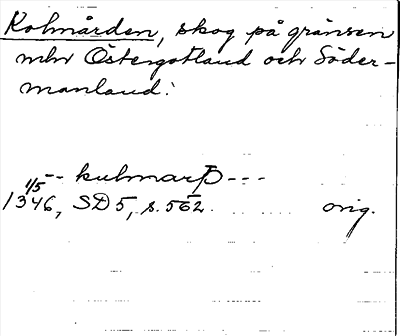 Kolmården, skog på gränsen
mln Östergötland och Söder-
manland:
-- kulmarþ ---
1/5
1346, SD 5, s. 562. orig.